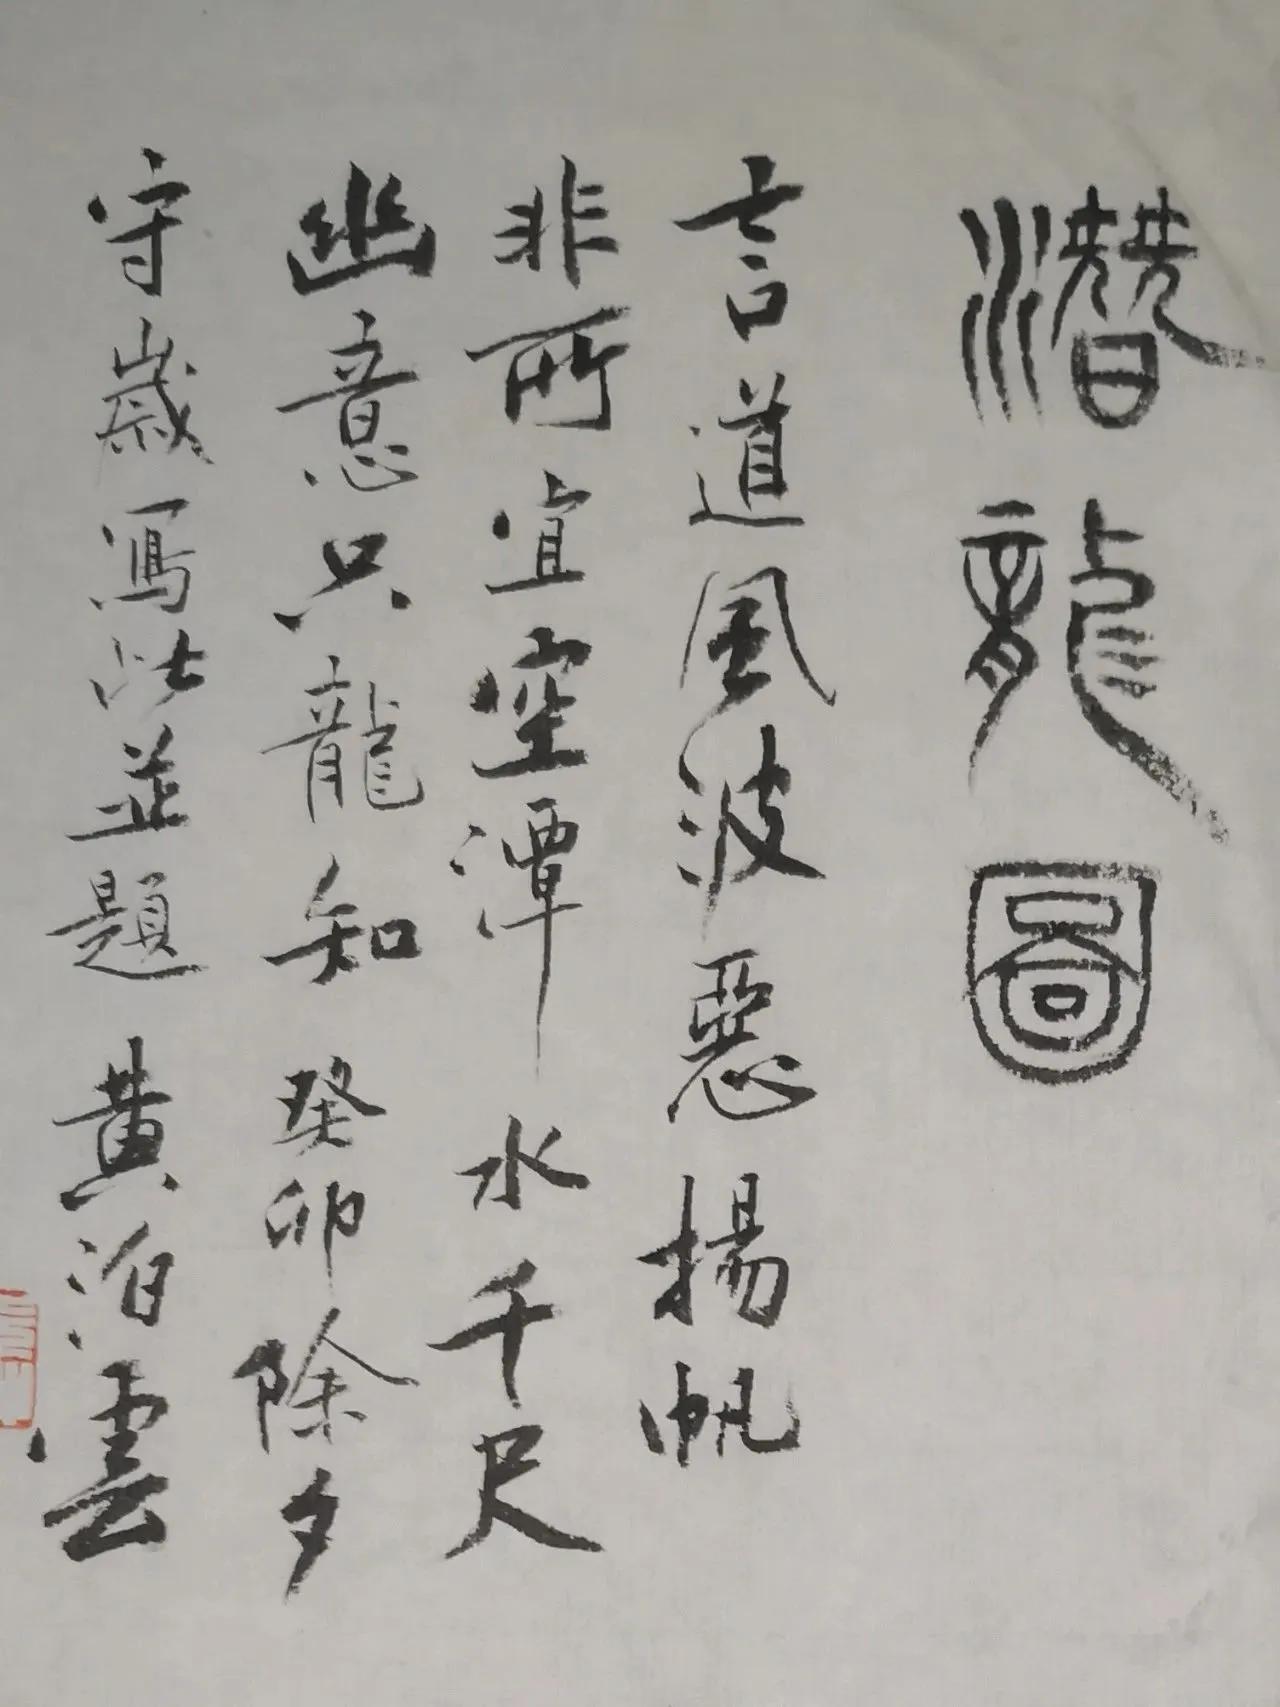 潛龍圖
言道風波惡揚帆
非所宜空潭水千尺
幽意只龍知癸卯除夕
守歲寫此並題黃泊雲